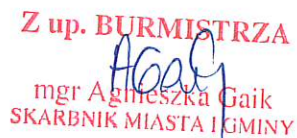 Z up. BURMISTRZA
AGaik
mgr Agnieszka Gaik
SKARBNIK MIASTA I GMINY